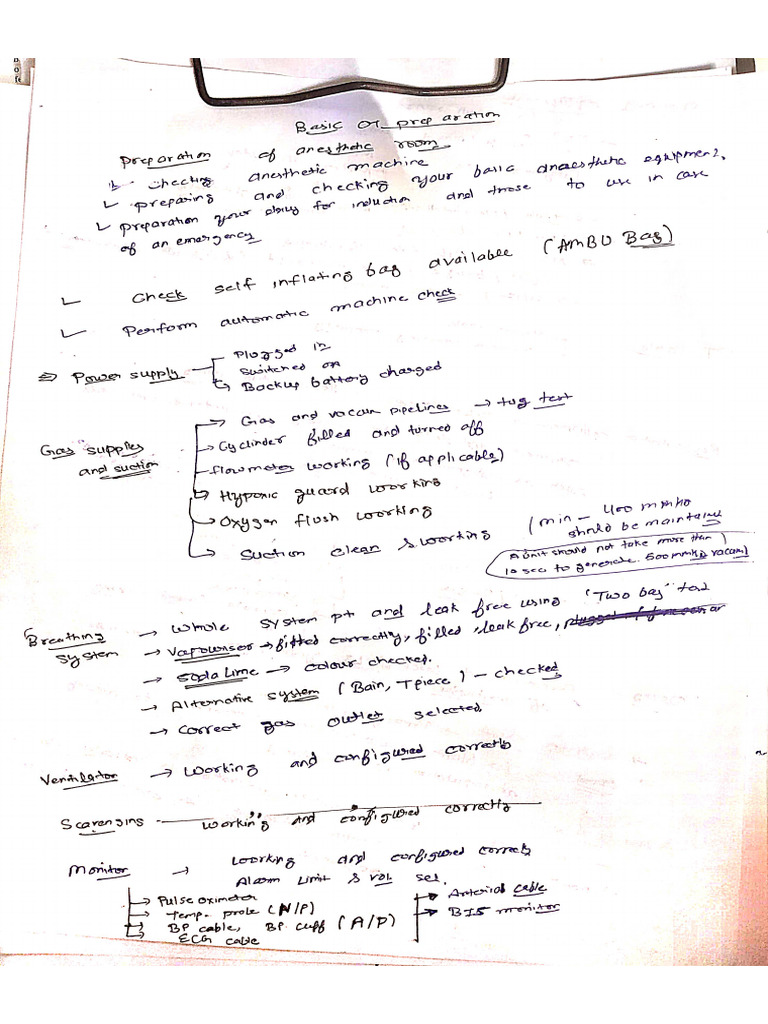 Basic OT preparation
Preparation of anesthetic room
checking anesthetic machine
preparing and checking your basic anaesthetic equipment.
preparation your drug for induction and those to use in case
of an emergency
Check self inflating bag available (AMBU Bag)
Perform automatic machine check
⇒ Power supply
Plugged in
Switched on
Backup battery charged
Gas supplies
and suction
→ Gas and vaccum pipelines → tug test
→ Cylinder filled and turned off
flowmeter working (if applicable)
→ Hypoxic guard working
→ Oxygen flush working
→ Suction clean & working (min - 400 mmHg
should be maintained
A unit should not take more than
10 sec to generate. 500mmHg vacum)
Breathing
system
→ Whole system pt and leak free using "Two bag" test
→ Vapouriser → fitted correctly, filled, leak free,
→ Soda Lime → colour checked.
→ Alternative system (Bain, T piece) - checked
→ Correct gas outlet selected
Ventilator → Working and configured correctly
Scavenging working and configured correctly
Monitor → Working and configured correctly
Alarm Limit & vol. set.
→ Pulse oximeter
→ Temp. probe (N/P)
→ BP cable, BP cuff (A/P)
→ ECG cable
→ Arterial cable
→ BIS monitor